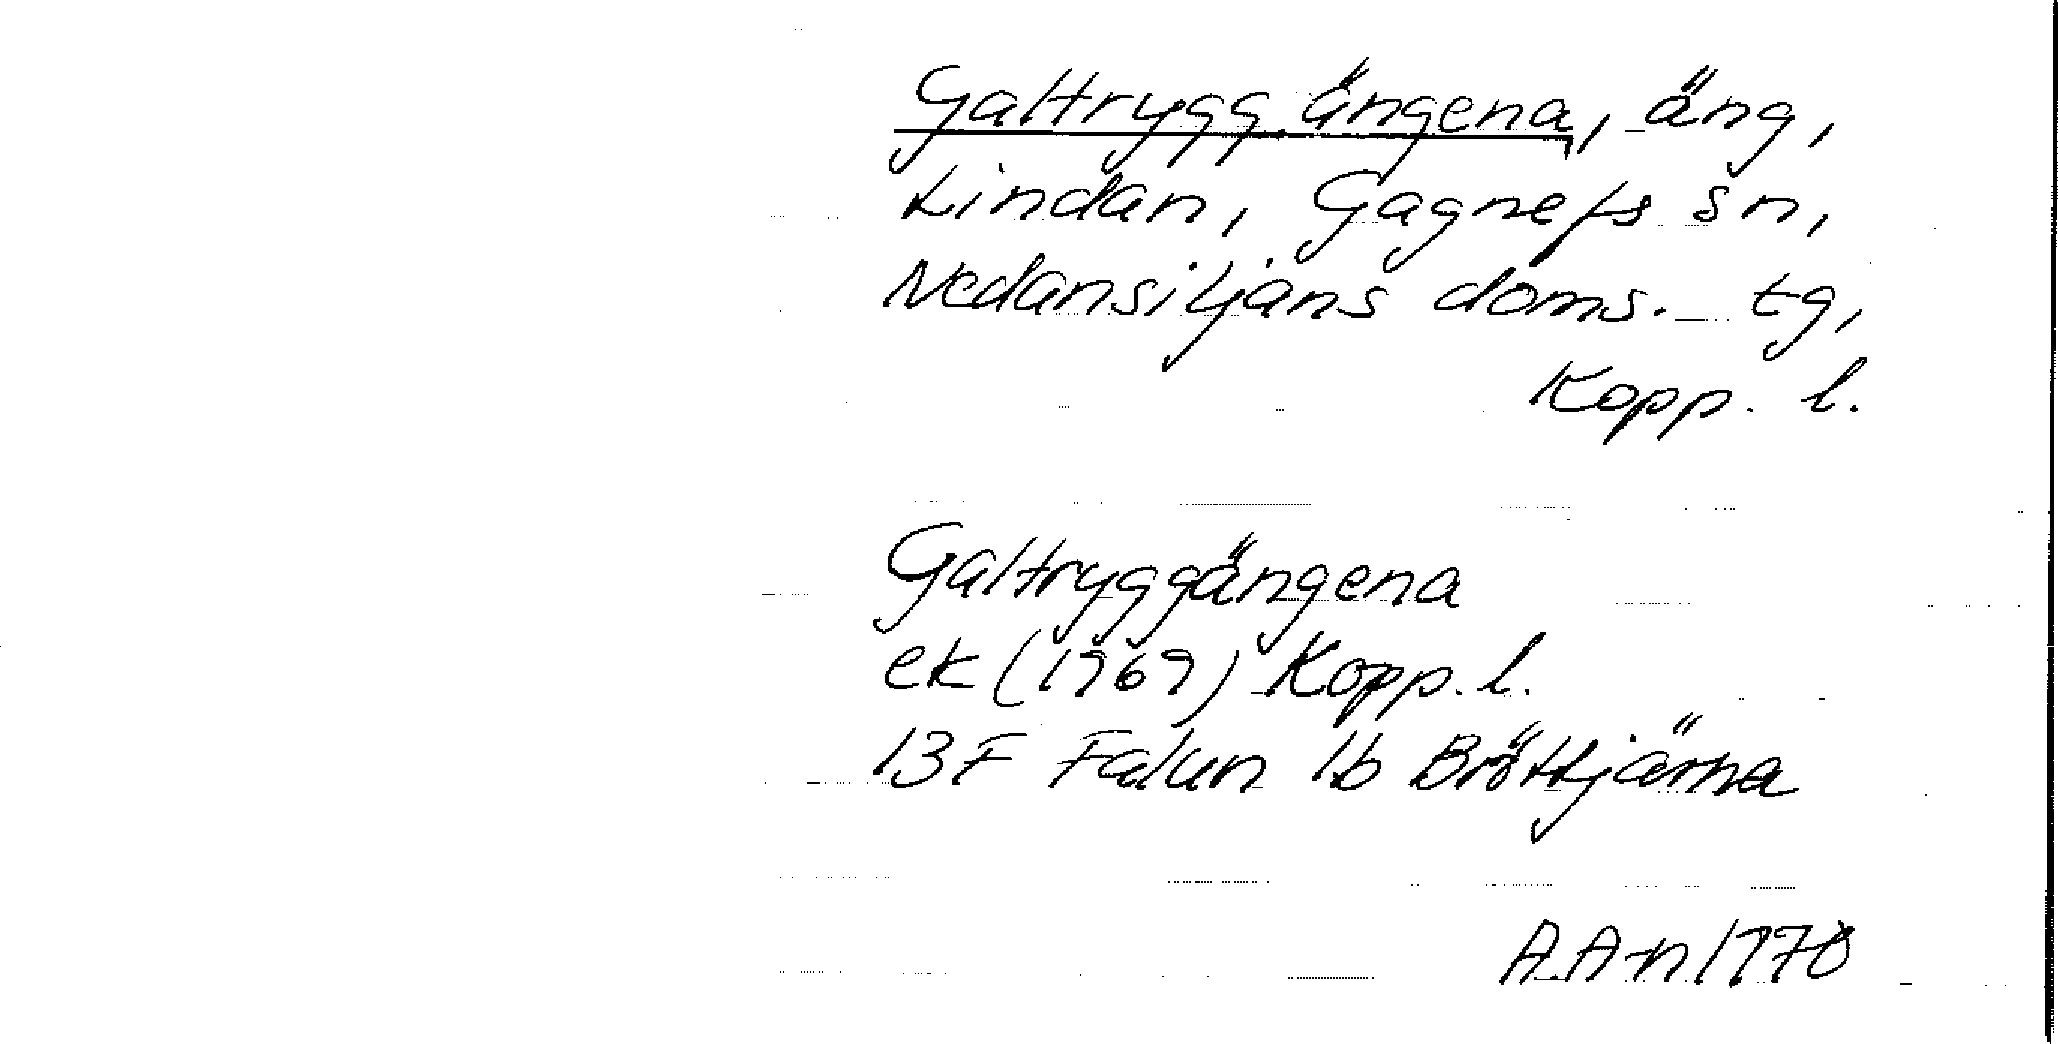 Galtryggängena, äng,
Lindan, Gagnefs sn,
Nedansiljans doms. tg,
Kopp. l.
Galtryggängena
ek (1969) Kopp. l.
13F Falun 1b Bröttjärna
A.A-n 1970